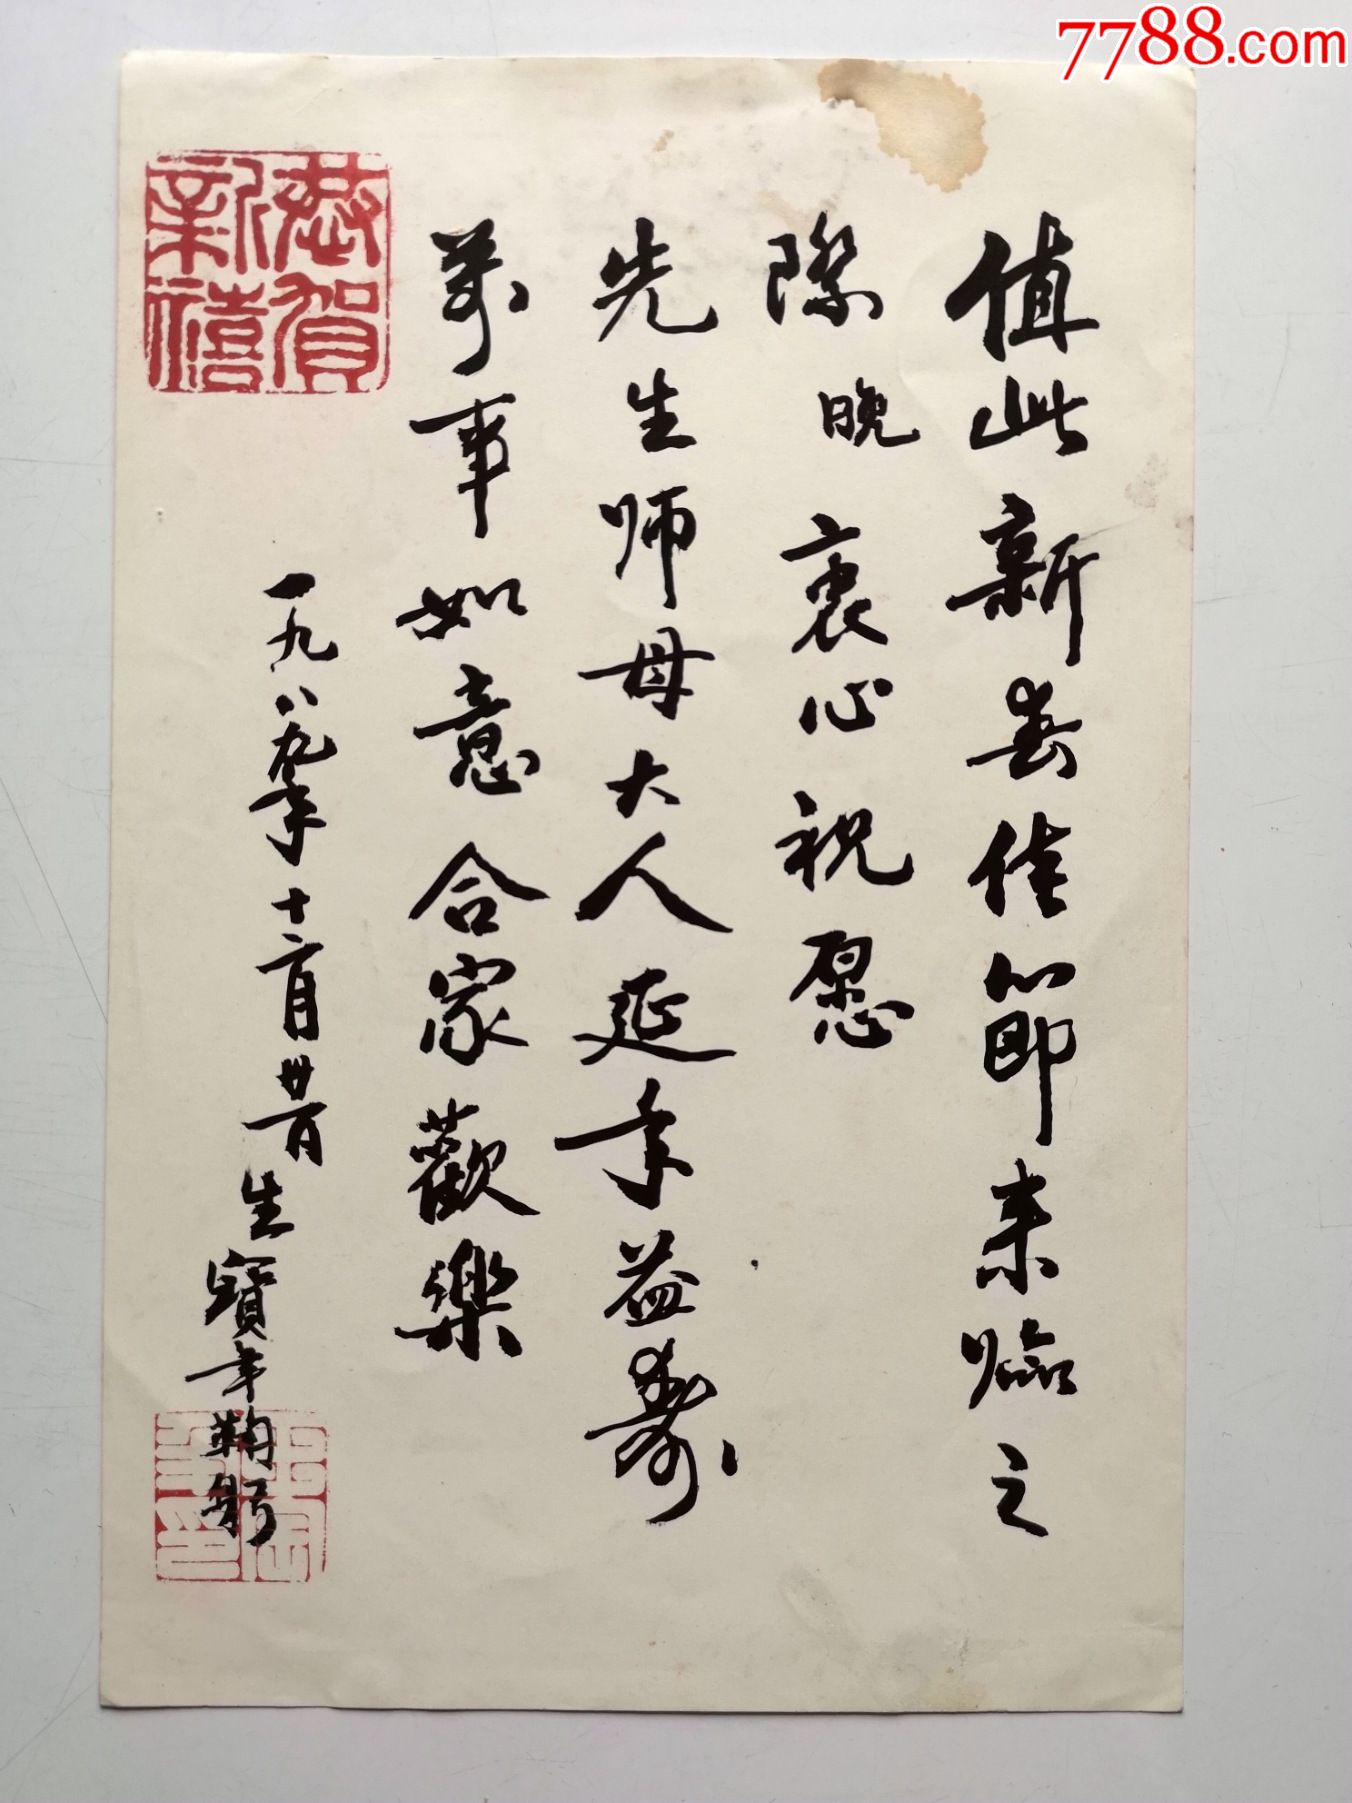 7788.com
恭賀新禧
值此新春佳節来临之
際晚衷心祝愿
先生师母大人延年益壽、
萬事如意合家歡樂
一九八九年十二月卅一日生寶年鞠躬